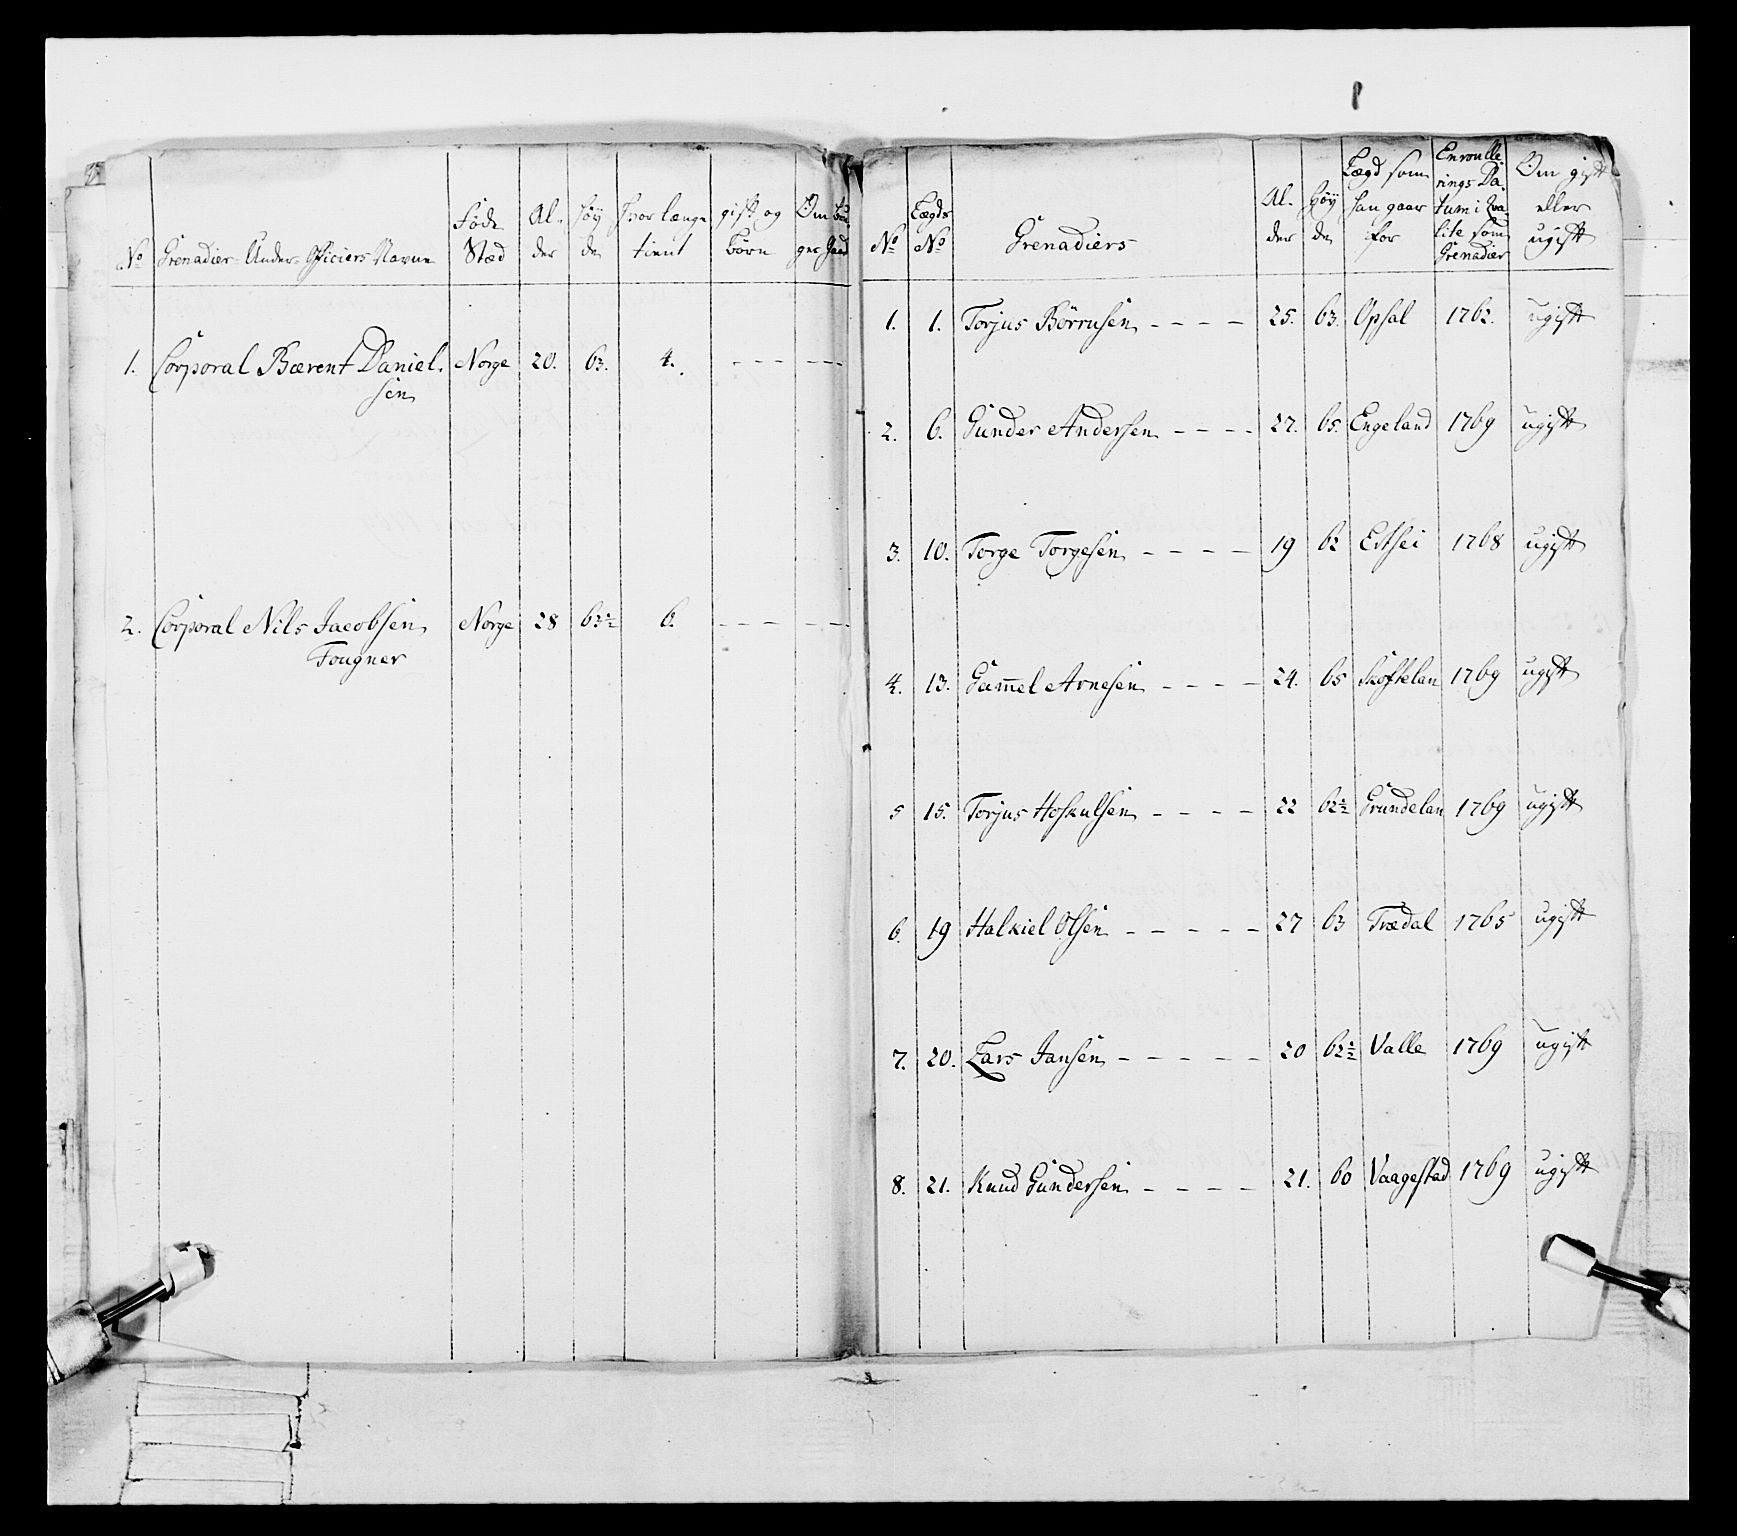 No Grenadier Under Officiers Navne Føde Stæd Al- der Høy de Hvor længe tient gift og Børn Om
1. Corporal Bærent Daniel- Norge 20. 63. 4. - - - - - -
sen
2. Corporal Nils Jacobsen Norge 28 63½ 6. - - - - - -
Fougner
No Lægds No Grenadiers Al- der Høy de Lægd som han gaar for Enroulle rings Da- tum i Qva- lite som Grenadier Om gift eller ugift
1. 1. Torjus Börrusen - - - - 25. 63. Opsal 1762. ugift
2. 6. Gunder Andersen - - - - 27. 65. Engeland 1769 ugift
3. 10. Torge Torgesen - - - - 19 62 Eithei 1768 ugift
4. 13. Gam̅el Arnesen - - - - 24. 65 Skoftelan 1769 ugift
5 15. Torjus Hoskulsen - - - - 22 62½ Grundelan 1769 ugift
6. 19 Halkiel Olsen - - - - - 27 63 Trædal 1765 ugift
7. 20. Lars Jansen - - - - - 20 62½ Valle 1769 ugift
8. 21. Knud Gundersen - - - - 21. 60 Vaagestad 1769 ugift